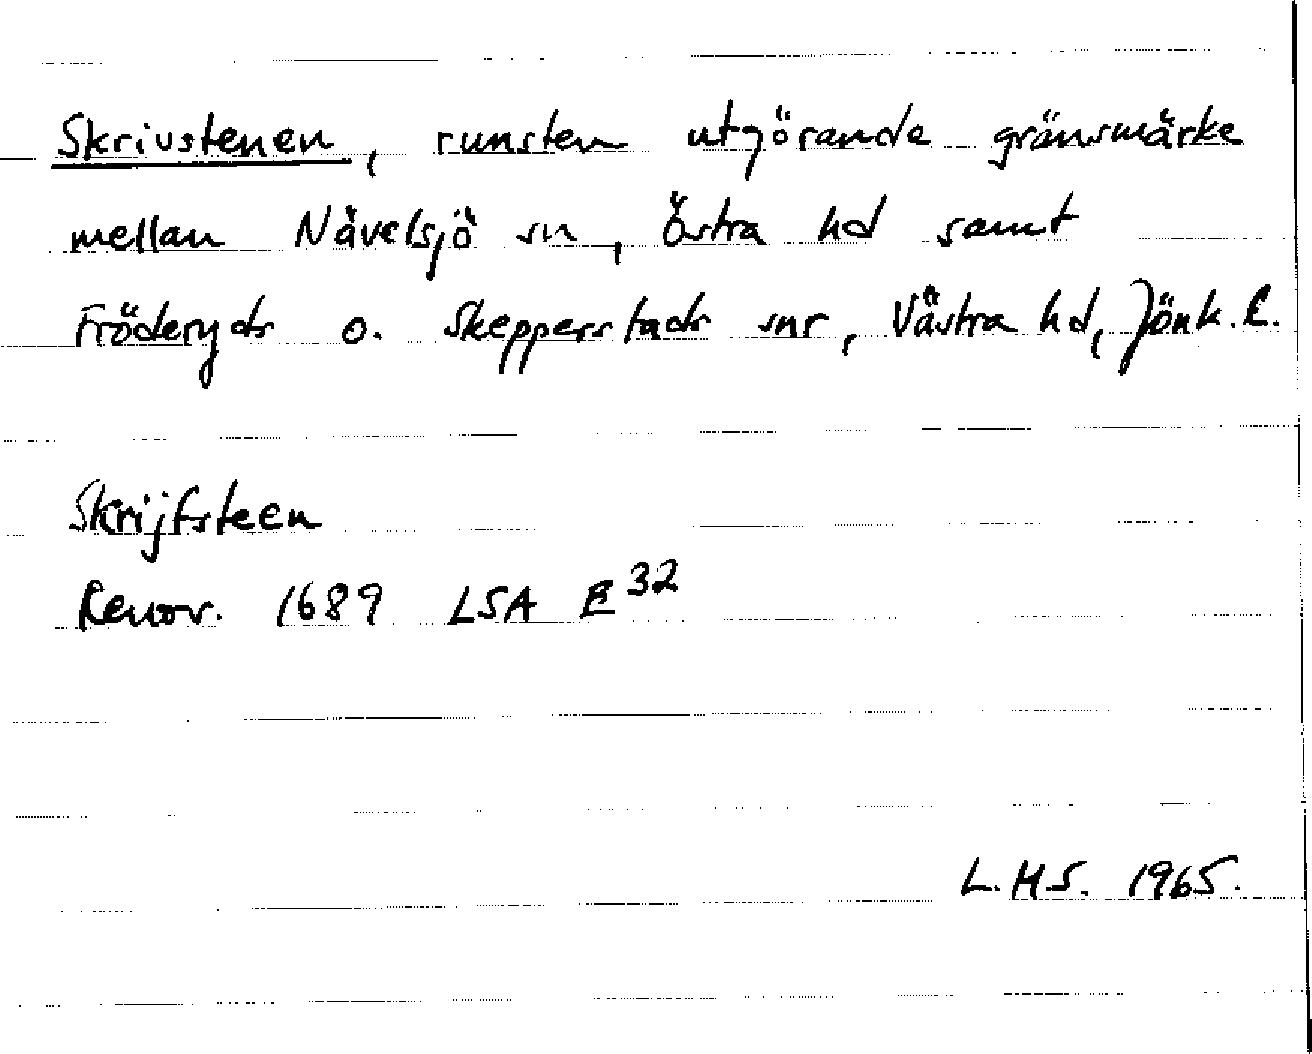 Skrivstenen, runsten utgörande gränsmärke
mellan Nävelsjö sn, Östra hd samt
Fröderyds o. Skepperstads snr, Västra hd, Jönk. l.
Skrijfsteen
Renov. 1689 LSA E 32
L.H.S. 1965.